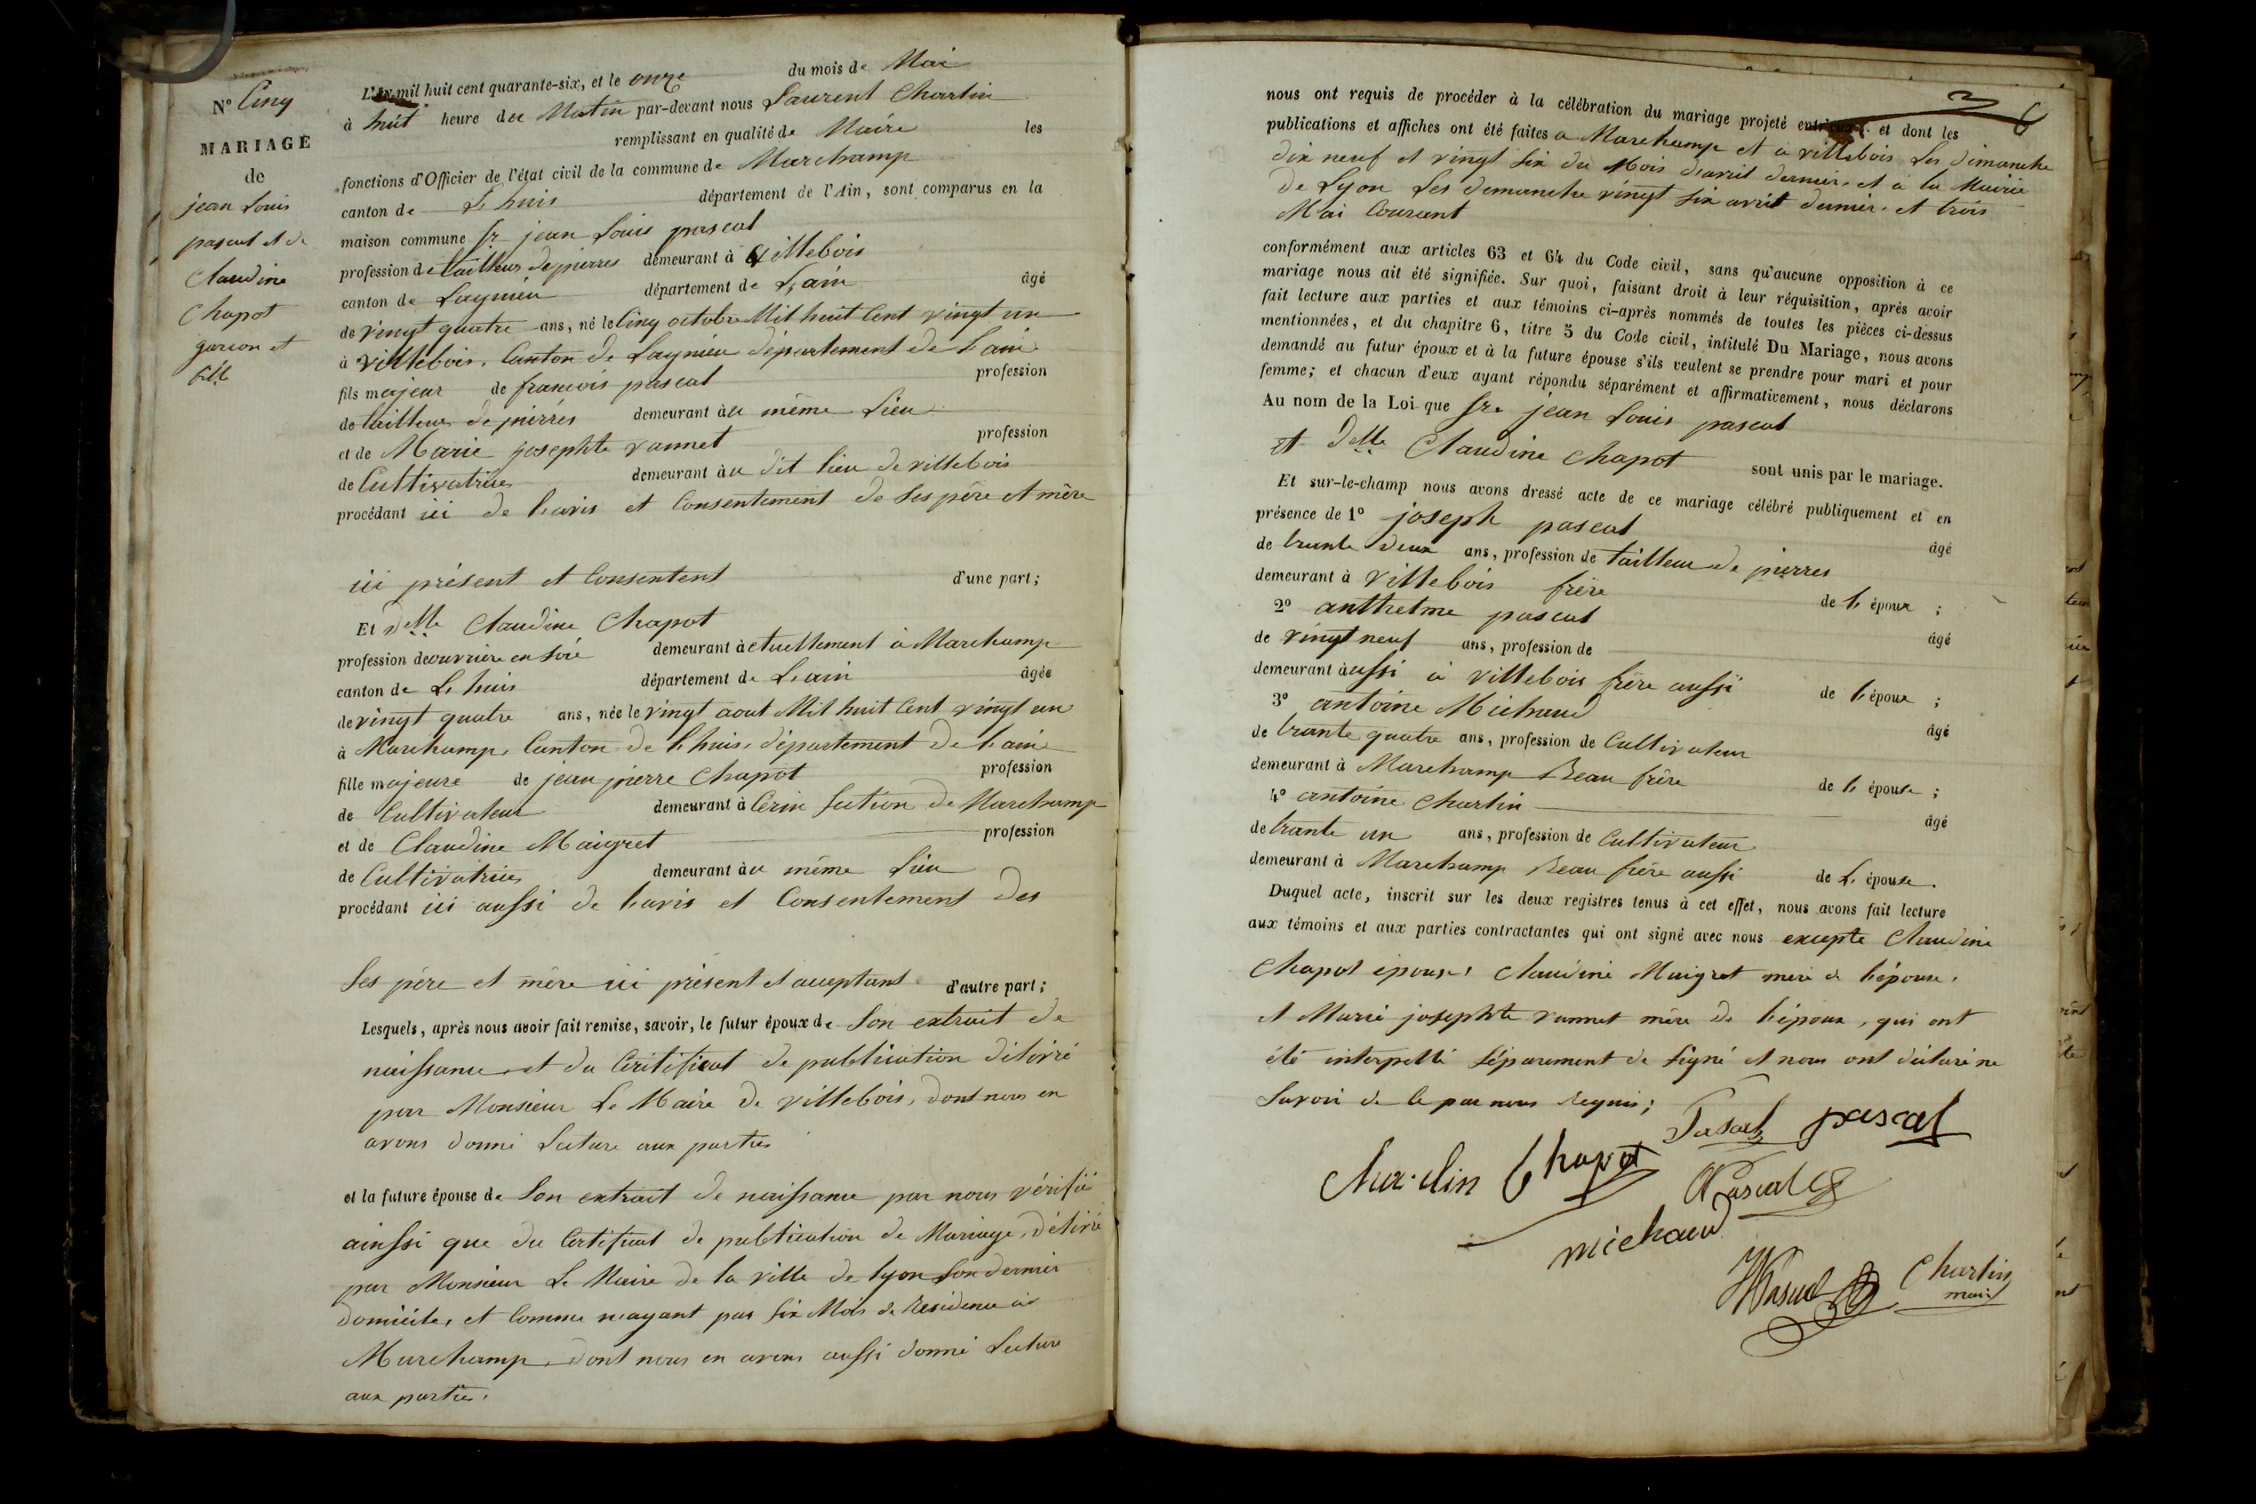 N° Cinq
MARIAGE
de
jean Louis
pascal et de
Claudine
Chapot
garcon et
fille
L'an mil huit cent quarante-six, et le onze du mois de Mai
à huit heure du Matin par-devant nous Laurent Charlin
remplissant en qualité de Maire les
fonctions d'Officier de l'état civil de la commune de Marchamp
canton de L'huis département de l'Ain, sont comparus en la
maison commune Sr. jean Louis pascal
profession de tailleur de pierres demeurant à Villebois
canton de Lagnieu département de L'ain âgé
de vingt quatre ans, né le Cinq octobre Mil huit Cent vingt un
à Villebois, Canton de Lagnieu département de l'ain
fils majeur de francois pascal profession
de tailleur de pierres demeurant au même Lieu
et de Marie josephte vannet profession
de Cultivatrice demeurant au dit lieu de villebois
procédant ici de l'avis et Consentement de Ses père et mère
ici présent et Consentent d'une part;
Et Delle Claudine Chapot
profession de ouvrière en soie demeurant actuellement à Marchamp
canton de L'huis département de L'ain âgée
de vingt quatre ans, née le vingt aout Mil huit Cent vingt un
à Marchamp, Canton de l'huis, département de l'ain
fille majeure de jean pierre Chapot profession
de Cultivateur demeurant à Cerin Section de Marchamp
et de Claudine Maigret profession
de Cultivatrice demeurant au même Lieu
procédant ici aussi de l'avis et Consentement des
Ses père et mère ici présent et acceptant d'autre part;
Lesquels, après nous avoir fait remise, savoir, le futur époux de Son extrait de
naissance et du Certificat de publication délivré
par Monsieur Le Maire de villebois, dont nous en
avons donné Lecture aux parties
et la future épouse de Son extrait de naissance par nous vérifié
ainssi que du Certificat de publication de Mariage, délivré
par Monsieur Le Maire de la ville de lyon Son dernier
domicile, et Comme n'ayant pas Six Mois de Résidence à
Marchamp, dont nous en avons aussi donné Lecture
aux parties.
6
nous ont requis de procéder à la célébration du mariage projeté entr'eux, et dont les
publications et affiches ont été faites a Marchamp et à villebois Les dimanche
dix neuf et vingt Six du Mois d'avril dernier, et à la Mairie
de Lyon Les demanche vingt Six avril dernier, et trois
Mai Courant
conformément aux articles 63 et 64 du Code civil, sans qu'aucune opposition à ce
mariage nous ait été signifiée. Sur quoi, faisant droit à leur réquisition, après avoir
fait lecture aux parties et aux témoins ci-après nommés de toutes les pièces ci-dessus
mentionnées, et du chapitre 6, titre 5 du Code civil, intitulé Du Mariage, nous avons
demandé au futur époux et à la future épouse s'ils veulent se prendre pour mari et pour
femme; et chacun d'eux ayant répondu séparément et affirmativement, nous déclarons
Au nom de la Loi que Sr. jean Louis pascal
et Delle Claudine Chapot sont unis par le mariage.
Et sur-le-champ nous avons dressé acte de ce mariage célébré publiquement et en
présence de 1° joseph pascal âgé
de trante deux ans, profession de tailleur de pierres
demeurant à Villebois frère de l'époux ;
2° anthelme pascal âgé
de vingt neuf ans, profession de
demeurant aussi à villebois frère aussi de l'époux ;
3° antoine Michaud âgé
de trante quatre ans, profession de Cultivateur
demeurant à Marchamp Beau frère de l'épouse ;
4° antoine Charlin âgé
de trante un ans, profession de Cultivateur
demeurant à Marchamp Beau frère aussi de L'épouse.
Duquel acte, inscrit sur les deux registres tenus à cet effet, nous avons fait lecture
aux témoins et aux parties contractantes qui ont signé avec nous excepte Claudine
Chapot épouse, Claudine Maigret mère de l'épouse,
et Marie josephte vannet mère de l'époux, qui ont
été interpellé Séparement de Signé et nous ont déclaré ne
Savoir de le par nous Requis;
Pascal pascal
Charlin Chapot APascal
michaud
Pascal Charlin
maire